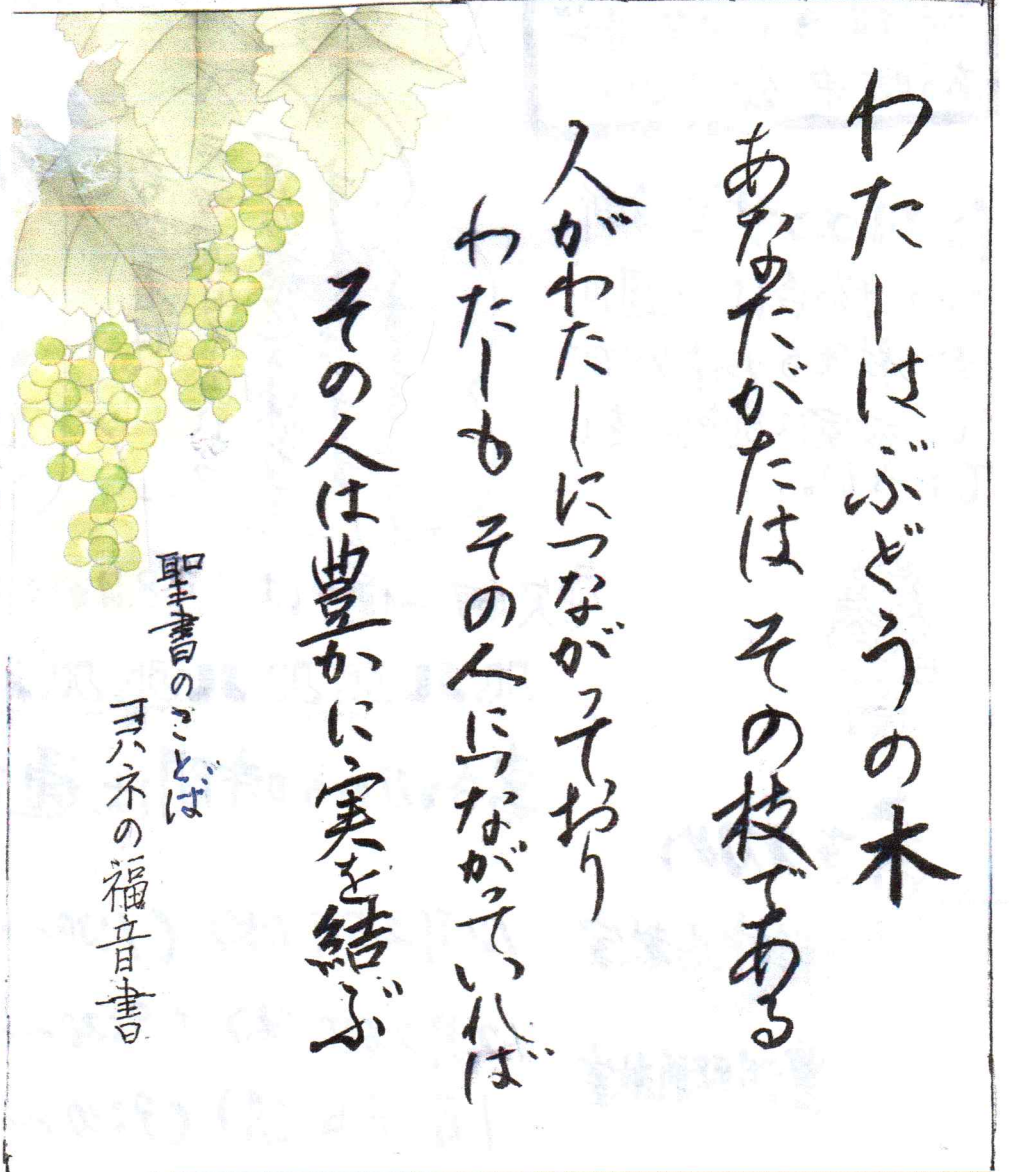 わたしはぶどうの木
あなたがたは その枝である
人がわたしにつながっており
わたしも その人につながっていれば
その人は豊かに実を結ぶ
聖書のことば
ヨハネの福音書